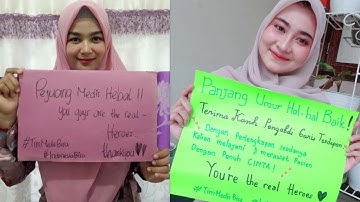 Pejuang Medis Hebat !!
you guys are the real -
Heroes
thankyou
#TimMedisBisa
#IndonesiaBisa
Panjang Umur Hal-hal Baik !
Terima Kasih Pengabdi Garis Terdepan
Dengan Perlengkapan seadanya
Kalian melayani & merawat Pasien
Dengan Penuh CINTA !
You're the real Heroes
#TimMedisBisa